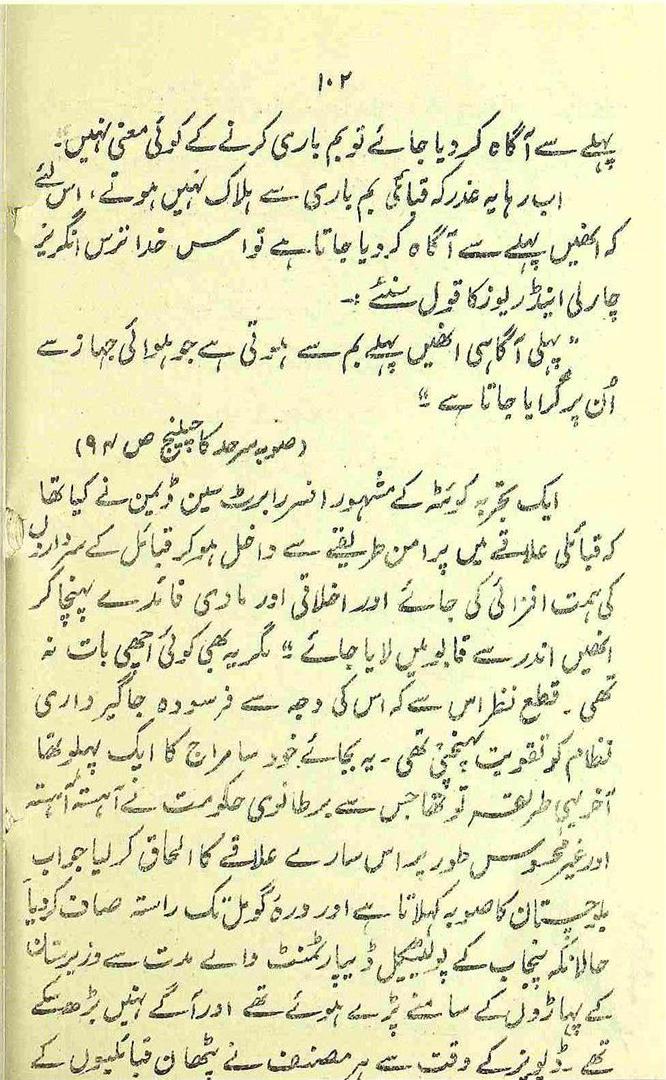 ۱۰۲
پہلے سے آگاہ کر دیا جائے تو بم باری کرنے کے کوئی معنی نہیں۔
اب رہا یہ عذر کہ قبائلی بم باری سے ہلاک نہیں ہوتے، اس لئے
کہ انھیں پہلے سے آگاہ کر دیا جاتا ہے تو اس خدا ترس انگریز
چارلی اینڈریوز کا قول سنئے :۔
"پہلی آگاہی انھیں پہلے بم سے ہوتی ہے جو ہوائی جہاز سے
اُن پر گرایا جاتا ہے"
(صوبہ سرحد کا چیلنج ص ۹۴)
ایک تجربہ کوئٹہ کے مشہور افسر رابرٹ سین ڈیمن نے کیا تھا
کہ قبائلی علاقے میں پرامن طریقے سے داخل ہو کر قبائل کے سرداروں
کی ہمت افزائی کی جائے اور اخلاقی اور مادی فائدے پہنچا کر
انھیں اندر سے قابو میں لایا جائے" مگر یہ بھی کوئی اچھی بات نہ
تھی۔ قطع نظر اس سے کہ اس کی وجہ سے فرسودہ جاگیرداری
نظام کو تقویت پہنچتی تھی۔ یہ بجائے خود سامراج کا ایک پہلو تھا
آخر یہی طریقہ تو تھا جس سے برطانوی حکومت نے آہستہ آہستہ
اور غیر محسوس طور پر اس سارے علاقے کا الحاق کر لیا جو اب
بلوچستان کا صوبہ کہلاتا ہے اور درہ گومل تک راستہ صاف کر دیا
حالانکہ پنجاب کے پولیٹیکل ڈیپارٹمنٹ والے مدت سے وزیرستان
کے پہاڑوں کے سامنے پڑے ہوئے تھے اور آگے نہیں بڑھ سکے
تھے۔ ڈیویز کے وقت سے ہر مصنف نے پٹھان قبائلیوں کے